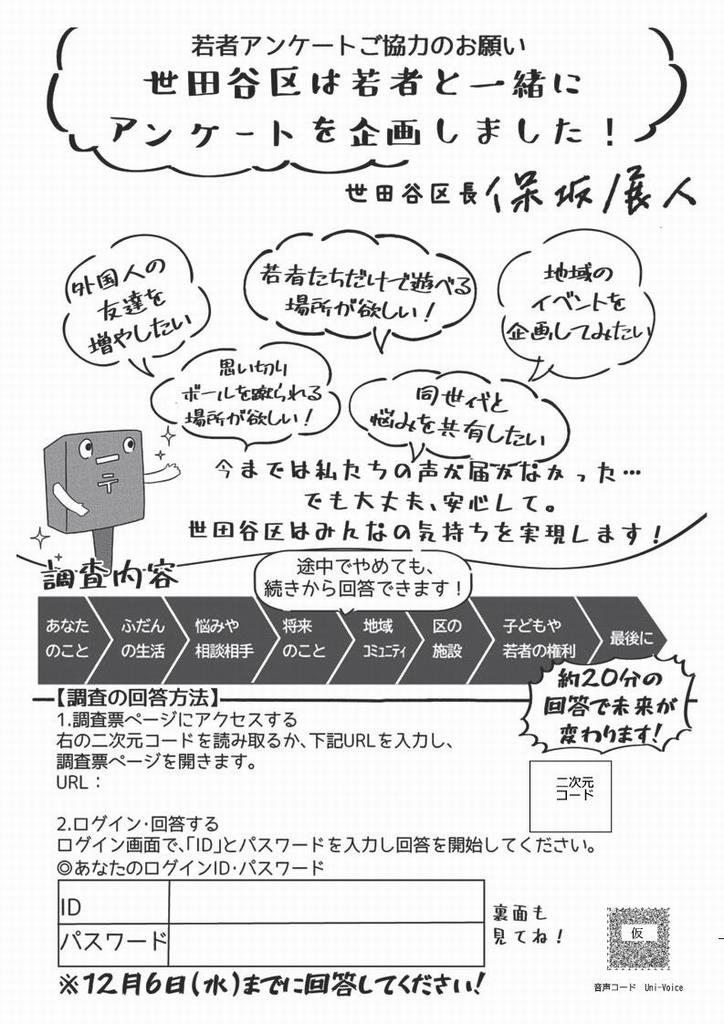 若者アンケートご協力のお願い
世田谷区は若者と一緒に
アンケートを企画しました！
世田谷区長 保坂展人
外国人の
友達を
増やしたい
若者たちだけで遊べる
場所が欲しい！
地域の
イベントを
企画してみたい
思い切り
ボールを蹴られる
場所が欲しい！
同世代と
悩みを共有したい
今までは私たちの声が届かなかった…
でも大丈夫、安心して。
世田谷区はみんなの気持ちを実現します！
調査内容
途中でやめても、
続きから回答できます！
あなた
のこと
ふだん
の生活
悩みや
相談相手
将来
のこと
地域
コミュニティ
区の
施設
子どもや
若者の権利
最後に
約20分の
回答で未来が
変わります！
【調査の回答方法】
1.調査票ページにアクセスする
右の二次元コードを読み取るか、下記URLを入力し、
調査票ページを開きます。
URL：
二次元
コード
2.ログイン・回答する
ログイン画面で、「ID」とパスワードを入力し回答を開始してください。
◎あなたのログインID・パスワード
ID
パスワード
裏面も
見てね！
仮
音声コード Uni-Voice
※12月6日(水)までに回答してください！